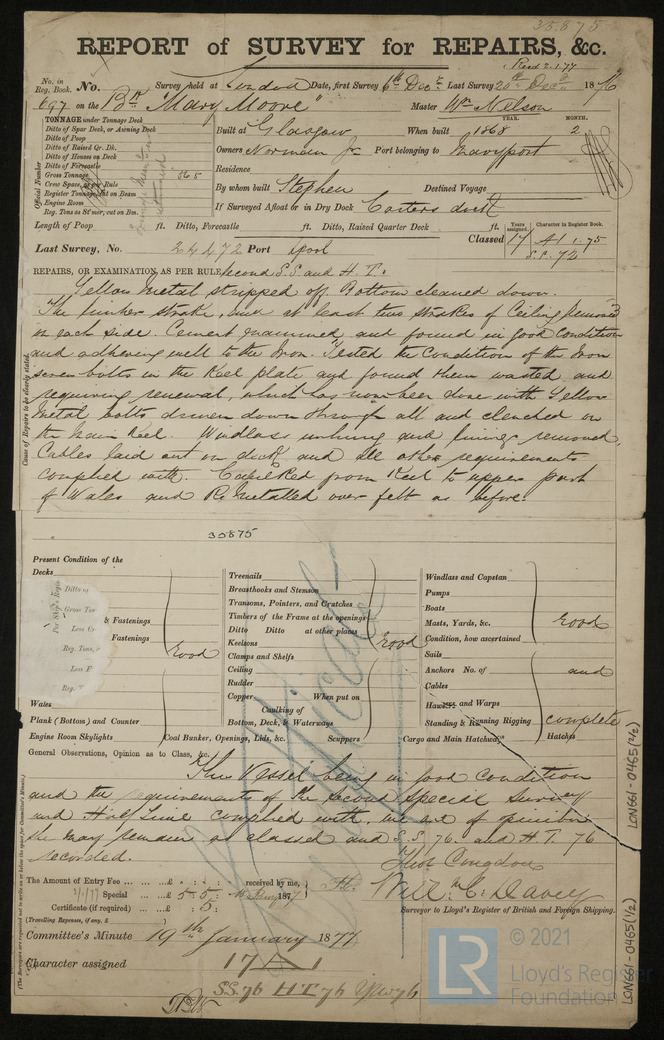 35875
REPORT of SURVEY for REPAIRS, &c.
Recd 2.1.77
No. in Reg. Book. No. Survey held at London Date, first Survey 6th Decr Last Survey 20th Decr 1876
697 on the Bk "Mary Moore" Master Wm Nelson
TONNAGE under Tonnage Deck
Ditto of Spar Deck, or Awning Deck
Ditto of Poop
Ditto of Raised Qr. Dk.
Ditto of Houses on Deck
Ditto of Forecastle
Gross Tonnage
Crew Space, as per Rule
Register Tonnage, cut on Beam
Engine Room
Reg. Tons as St'mer, cut on Bm.
Official Number
865
YEAR. MONTH.
Built at Glasgow When built 1868 2
Owners Norman Jr Port belonging to Maryport
Residence
By whom built Stephen Destined Voyage
If Surveyed Afloat or in Dry Dock Carters dock
Length of Poop ft. Ditto, Forecastle ft. Ditto, Raised Quarter Deck ft.
Years assigned. Character in Register Book.
Classed 17 A1 1.75
S.S. 72
Last Survey, No. 24472 Port Lpool
REPAIRS, OR EXAMINATION, AS PER RULE Second S.S. and H.T.
Yellow Metal stripped off Bottom cleaned down.
The limber strake, and at least two strakes of Ceiling removed
on each side. Cement examined and found in good condition
and adhering well to the Iron. Tested the condition of the Iron
screw bolts in the Keel plate and found them wasted and
requiring renewal, which has now been done with Yellow
Metal bolts driven down through all and clenched on
the Main Keel. Windlass unhung and linings removed,
Cables laid out on deck and all other requirements
complied with. Caulked from Keel to upper part
of Wales and Re Metalled over felt as before.
Cause of Repairs to be clearly stated.
35875
Present Condition of the
Decks
Ditto of
Gross Ton
Less Cr
Reg. Tons,
Less
Reg.
& Fastenings
Fastenings
Good
Wales
Plank (Bottom) and Counter
Engine Room Skylights
Treenails
Breasthooks and Stemson
Transoms, Pointers, and Crutches
Timbers of the Frame at the openings
Ditto Ditto at other places
Keelsons
Clamps and Shelfs
Good
Ceiling
Rudder
Copper, When put on
Caulking of
Bottom, Deck, & Waterways
Coal Bunker, Openings, Lids, &c. Scuppers
Windlass and Capstan
Pumps
Boats
Masts, Yards, &c.
Condition, how ascertained
Good
Sails
Anchors No. of and
Cables
Hawsers and Warps
Standing & Running Rigging complete
Cargo and Main Hatchways Hatches
General Observations, Opinion as to Class, &c.
This Vessel being in good condition
and the requirements of the Second Special Survey
and Half Time complied with, we are of opinion
she may remain as classed and S.S. 76. and H.T. 76
recorded.
Thos Congdon
Will. C. Davey
Surveyor to Lloyd's Register of British and Foreign Shipping.
The Amount of Entry Fee £ : : received by me,
Special £ 5 : 5 : 1877
Certificate (if required) £ : 5 :
(Travelling Expenses, if any, £ )
Committee's Minute 19th January 1877
Character assigned 17 A 1
SS 76 HT 76
© 2021
LR
Lloyd's Register
Foundation
LON661-0465(2/2)
LON661-0465(1/2)